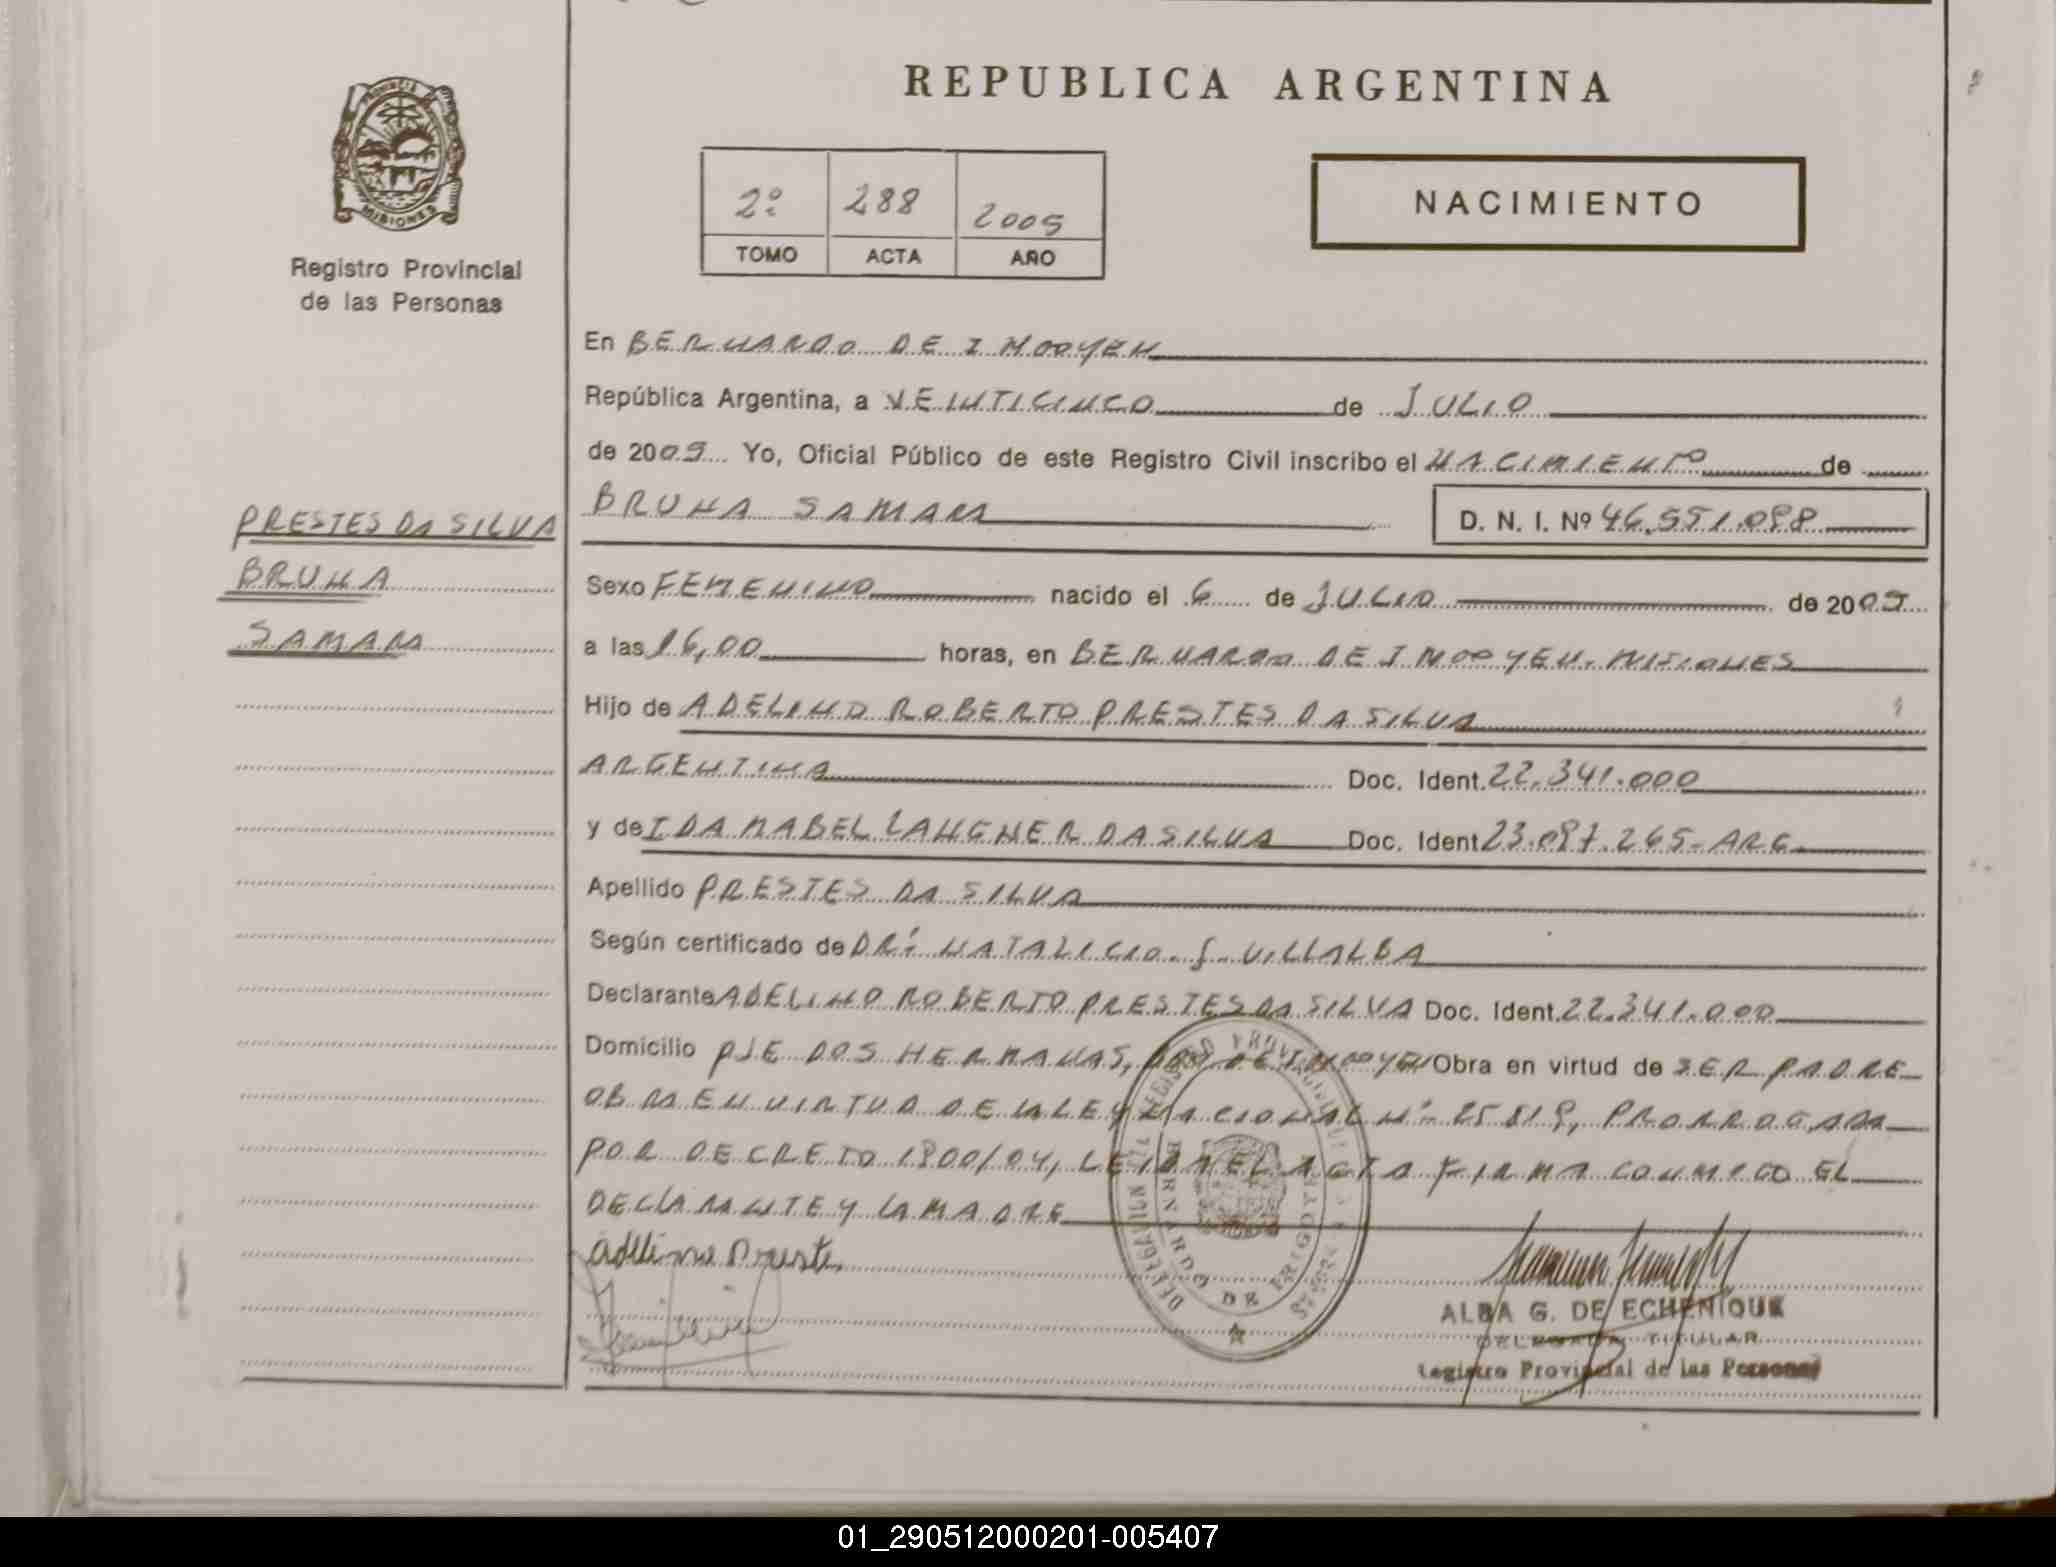 REPUBLICA ARGENTINA
PROVINCIA
MISIONES
Registro Provincial
de las Personas
2º 288 2005
TOMO ACTA AÑO
NACIMIENTO
En BERNARDO DE IRIGOYEN
República Argentina, a VEINTICINCO de JULIO
de 2005 Yo, Oficial Público de este Registro Civil inscribo el NACIMIENTO de
BRUNA SAMAM D. N. I. Nº 46.551.098
PRESTES DA SILVA
BRUNA
SAMAM
Sexo FEMENINO nacido el 6 de JULIO de 2005
a las 16,00 horas, en BERNARDO DE IRIGOYEN. MISIONES
Hijo de ADELINO ROBERTO PRESTES DA SILVA
ARGENTINA Doc. Ident. 22.341.000
y de IDA MABEL LANGNER DA SILVA Doc. Ident 23.097.265- ARG.
Apellido PRESTES DA SILVA
Según certificado de DR: NATALICIO. J. VILLALBA
Declarante ADELINO ROBERTO PRESTES DA SILVA Doc. Ident. 22.341.000
Domicilio PJE DOS HERMANAS, DE IRIGOYEN Obra en virtud de SER PADRE
OBRA EN VIRTUD DE LA LEY NACIONAL Nº 25819, PRORROGADA
POR DECRETO 1900/04, LEIDA EL ACTA FIRMA CONMIGO EL
DECLARANTE Y LA MADRE
Adelino Preste
REGISTRO PROVINCIAL DE LAS PERSONAS
DELEGACION
BERNARDO DE IRIGOYEN
ALBA G. DE ECHENIQUE
DELEGADA TITULAR
Registro Provincial de las Personas
01_290512000201-005407